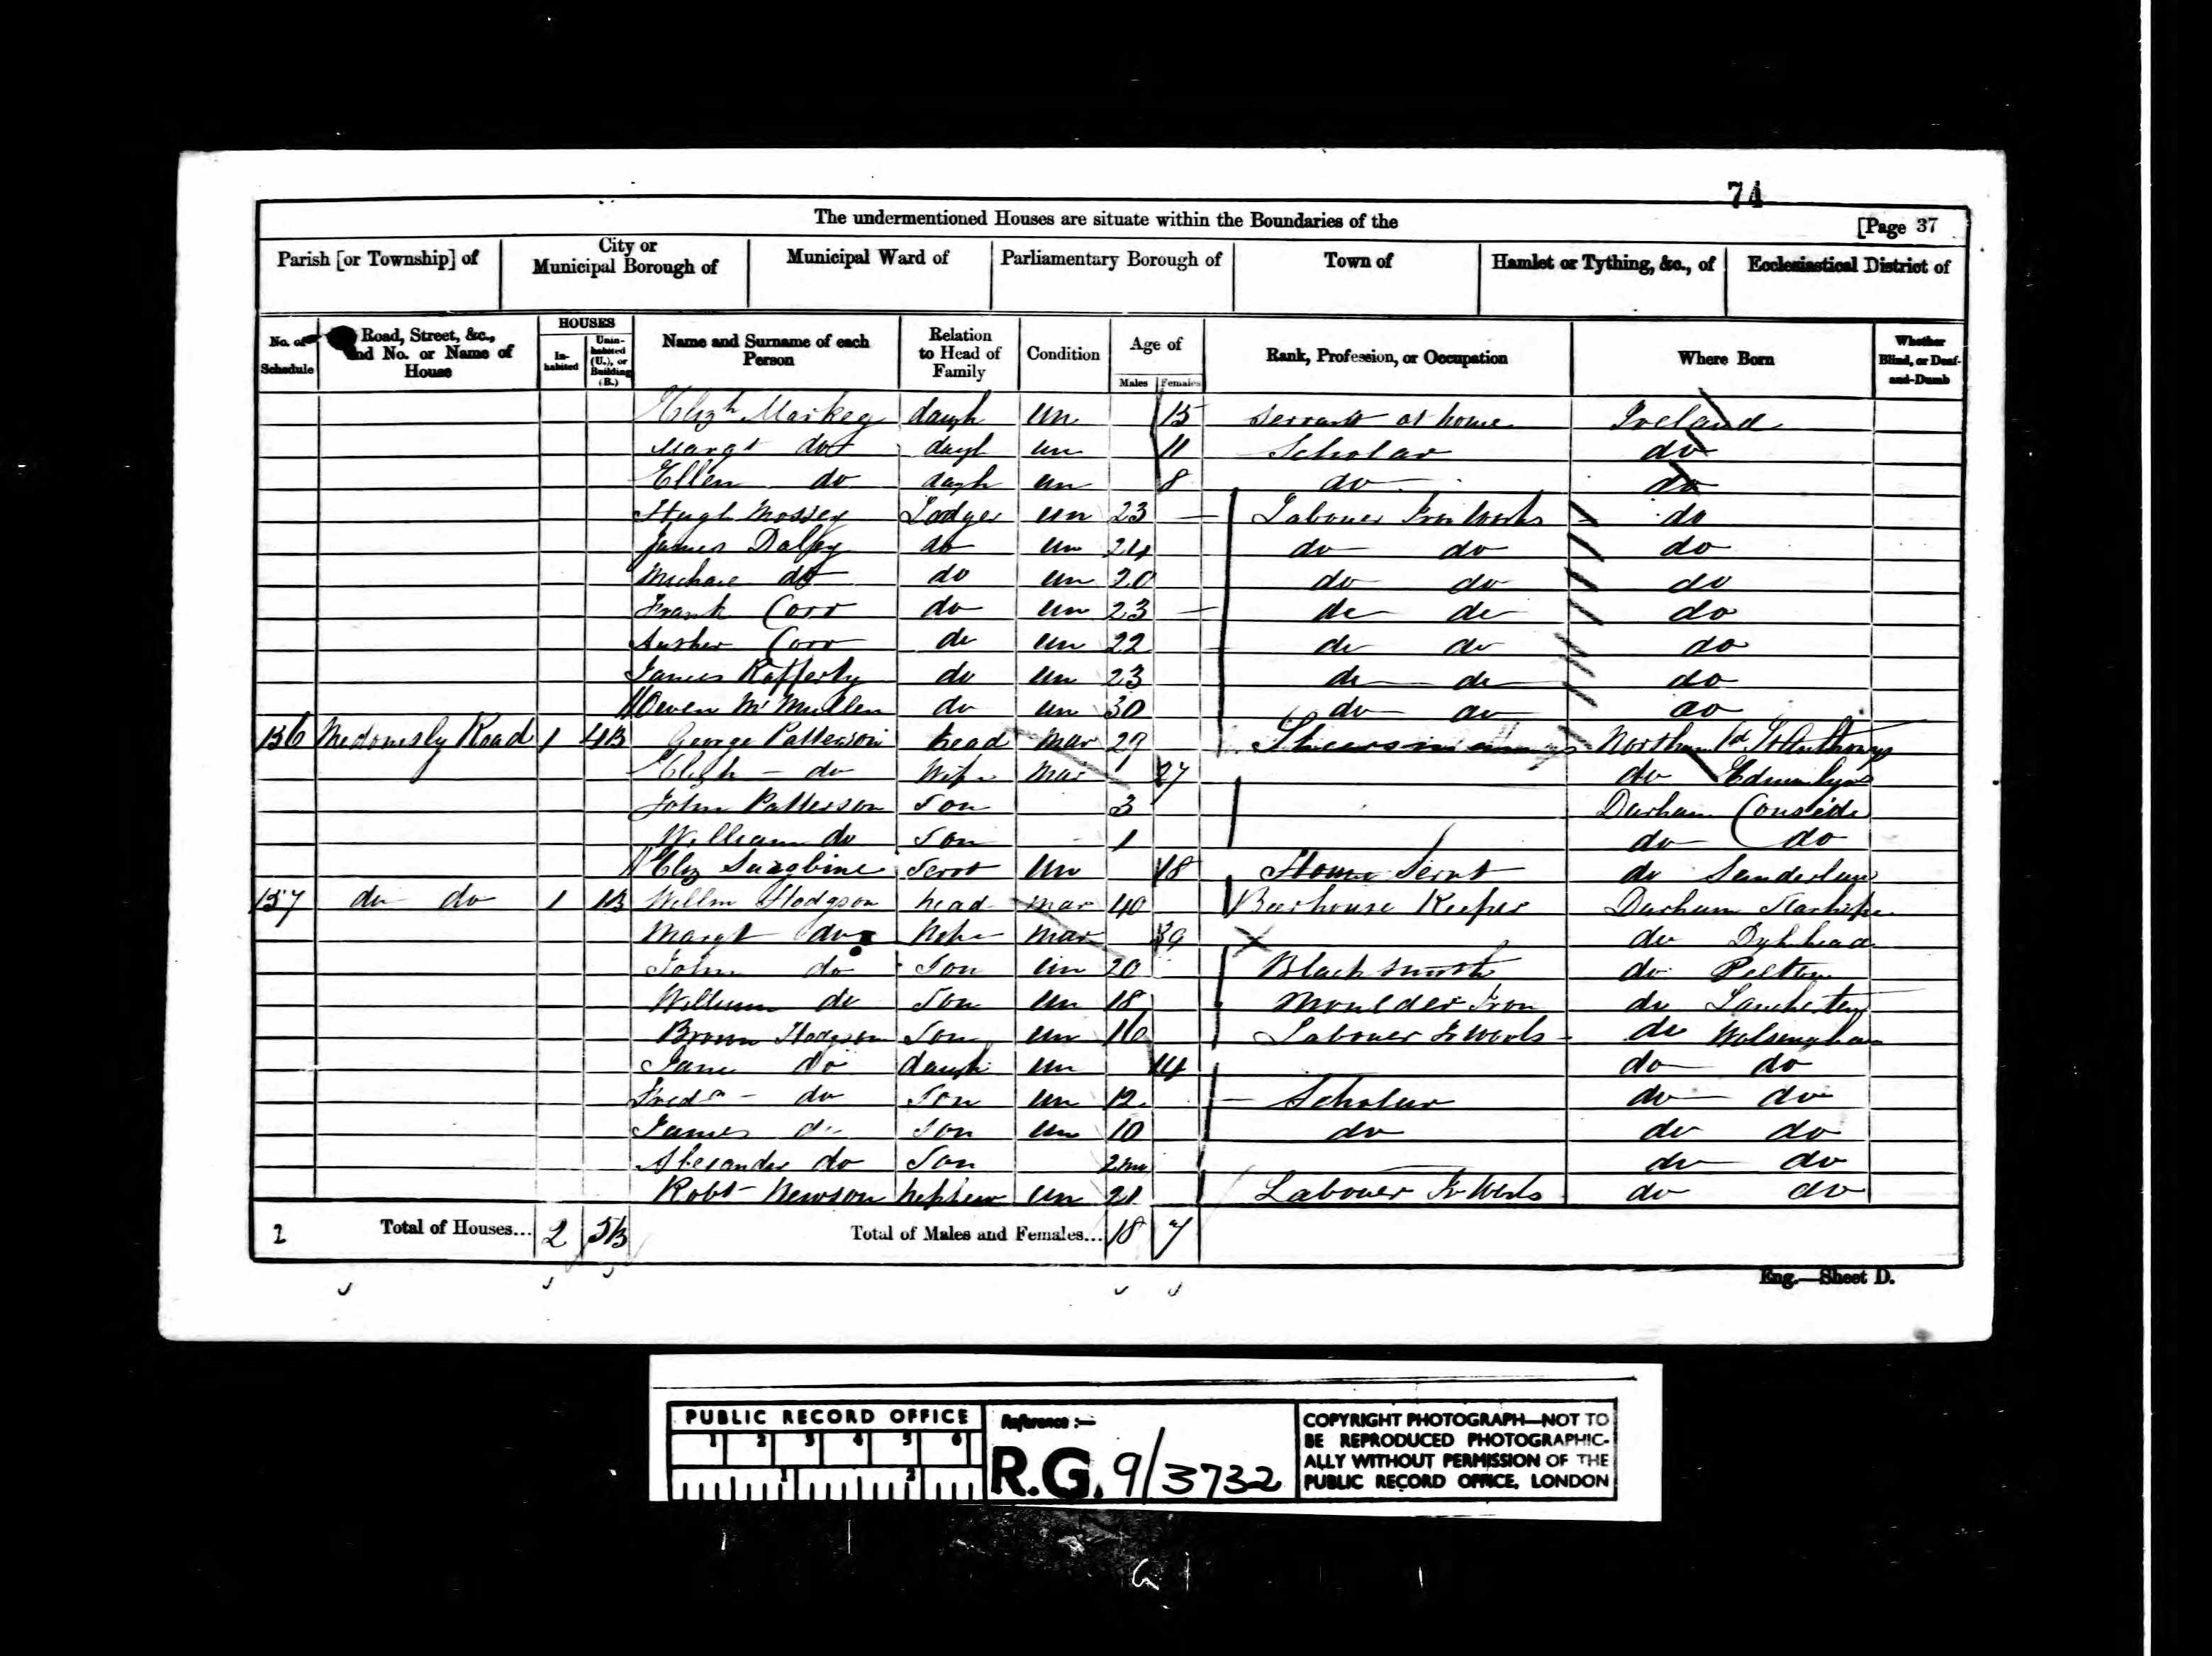 74
The undermentioned Houses are situate within the Boundaries of the
[Page 37
Parish [or Township] of City or Municipal Borough of Municipal Ward of Parliamentary Borough of Town of Hamlet or Tything, &c., of Ecclesiastical District of
No. of Schedule Road, Street, &c., and No. or Name of House HOUSES Inhabited Uninhabited (U.), or Building (B.) Name and Surname of each Person Relation to Head of Family Condition Age of Males Females Rank, Profession, or Occupation Where Born Whether Blind, or Deaf-and-Dumb
Elizh Markey daugh un 15 Servant at home Ireland
Margt do daugh un 11 Scholar do
Ellen do daugh un 8 do do
Hugh Lodger un 23 Labouer Iron Works do
James do un 24 do do do
Michael do do un 20 do do do
Frank Corr do un 23 do do do
Corr do un 22 do do do
James Rafferty do un 23 do do do
Owen McMullen do un 30 do do do
136 Medomsly Road 1 4B George Patterson head mar 29 Northumld St Anthonys
Elizh do Wife mar 27 do
John Patterson Son 3 Durham Conside
William do Son 1 do do
Eliz Servt Un 18 House Servt do Sunderlan
137 do do 1 1B Willm Hodgson head mar 40 Beerhouse Keeper Durham
Margt do Wife mar 39 do
John do Son un 20 Blacksmith do Pelton
William do Son un 18 Moulder Iron do Lanchester
Brown Hodgson Son un 16 Labouer Ir Works do Wolsingham
Jane do daugh un 14 do do
Fredk do Son un 12 Scholar do do
James do Son un 10 do do do
Alexander do Son 2m do do
Robt Newson nephew un 21 Labouer Ir Works do do
2 Total of Houses... 2 5B Total of Males and Females... 18 7
Eng.—Sheet D.
PUBLIC RECORD OFFICE
1 2 3 4 5 6
1 2
Reference :—
R.G. 9/3732
COPYRIGHT PHOTOGRAPH—NOT TO
BE REPRODUCED PHOTOGRAPHIC-
ALLY WITHOUT PERMISSION OF THE
PUBLIC RECORD OFFICE, LONDON